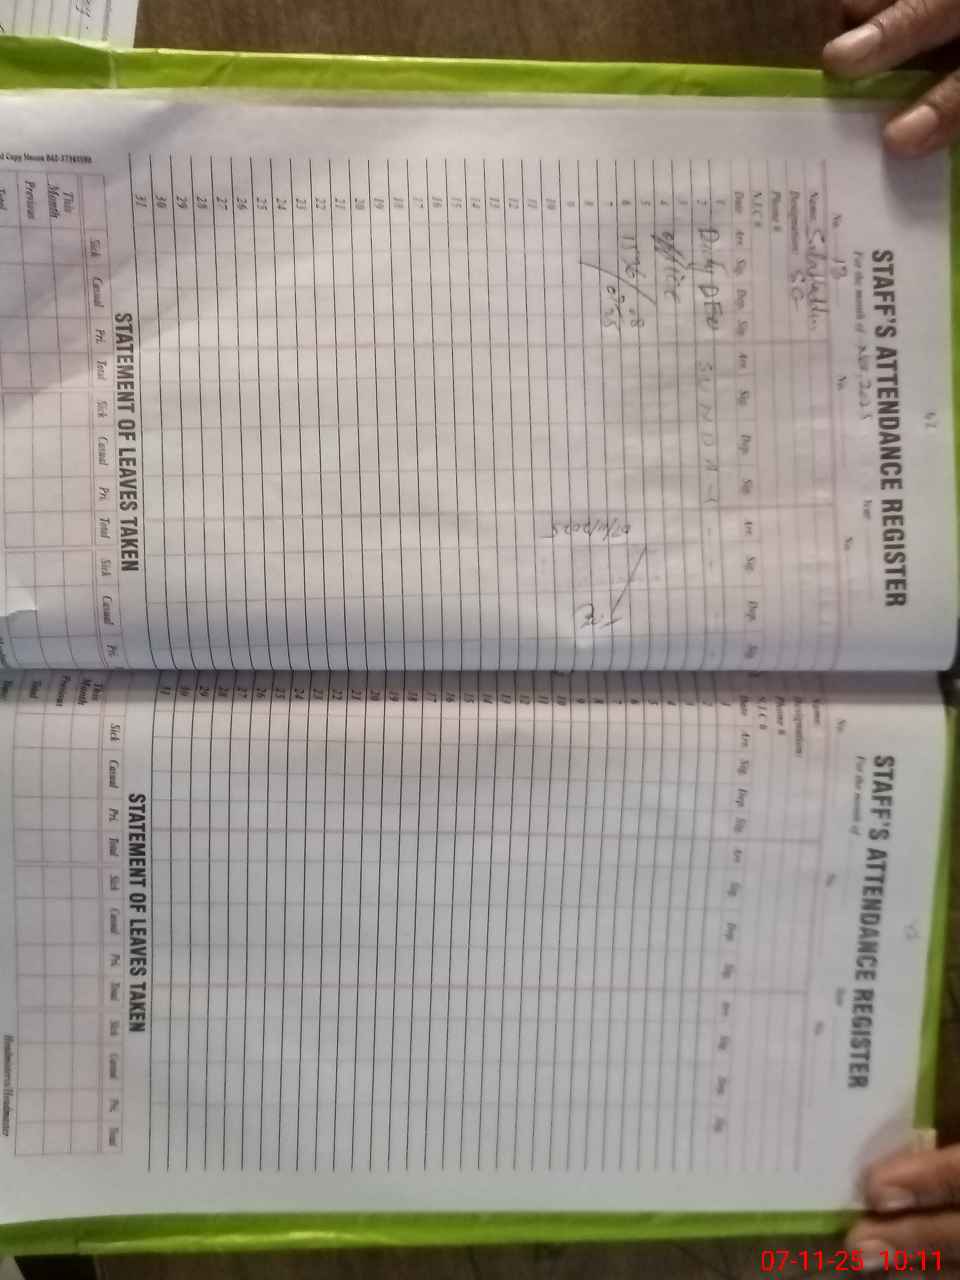 42
STAFF'S ATTENDANCE REGISTER
For the month of Nov, 2025 Year
No. 13 No. No.
Name: Salahuddin
Designation: SG
Phone #
N.I.C #
Date Arr. Sig. Dep. Sig. Arr. Sig. Dep. Sig. Arr. Sig. Dep. Sig.
1
2 Duty DEO SUNDAY
3
4 office
5
6 1576/08
7
8
9
10
11
12
13
14
15
16
17
18
19
20
21
22
23
24
25
26
27
28
29
30
31
STATEMENT OF LEAVES TAKEN
Sick Casual Pri. Total Sick Casual Pri. Total Sick Casual Pri.
This Month
Previous
Total
Copy House 042-37361598
STAFF'S ATTENDANCE REGISTER
For the month of Year
No. No. No.
Name:
Designation:
Phone #
N.I.C #
Date Arr. Sig. Dep. Sig. Arr. Sig. Dep. Sig. Arr. Sig. Dep. Sig.
1
2
3
4
5
6
7
8
9
10
11
12
13
14
15
16
17
18
19
20
21
22
23
24
25
26
27
28
29
30
31
STATEMENT OF LEAVES TAKEN
Sick Casual Pri. Total Sick Casual Pri. Total Sick Casual Pri. Total
This Month
Previous
Total
Headmistress/Headmaster
07-11-25 10:11